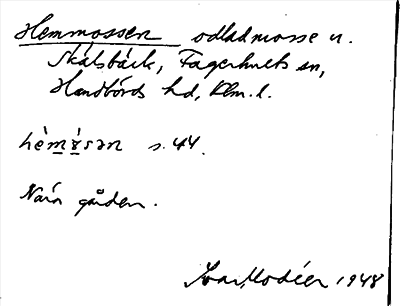 Hemmossen odlad mosse u.
Skälsbäck, Fagerhults sn,
Handbörds hd, Klm. l.
hèmṃósən s. 44.
Nära gården.
Ivar Modéer 1948